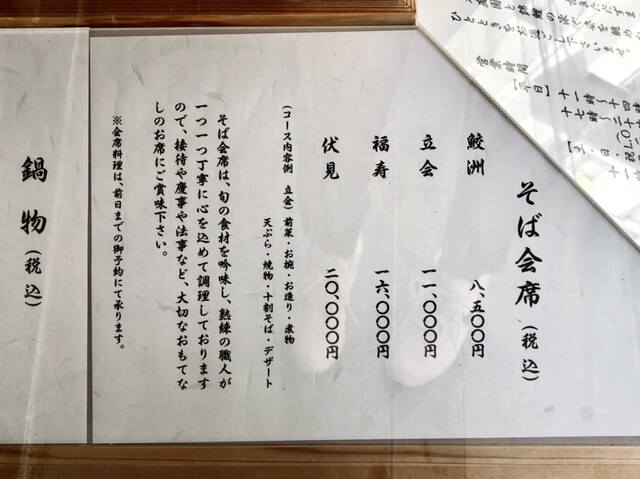 営業時間
そば会席（税込）
鮫洲　八、五〇〇円
立会　一一、〇〇〇円
福寿　一六、〇〇〇円
伏見　二〇、〇〇〇円
（コース内容例　立会）前菜・お椀・お造り・煮物
天ぷら・焼物・十割そば・デザート
そば会席は、旬の食材を吟味し、熟練の職人が
一つ一つ丁寧に心を込めて調理しております
ので、接待や慶事や法事など、大切なおもてな
しのお席にご賞味下さい。
※会席料理は、前日までの御予約にて承ります。
鍋物（税込）